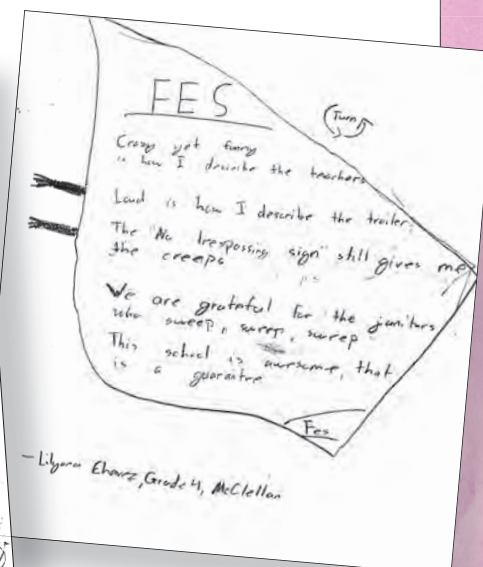 FES
Turn
Crazy yet funny
is how I describe the teachers
Loud is how I describe the trailer.
The "No trespassing sign" still gives me
the creeps
We are grateful for the janitors
who sweep, sweep, sweep
This school is awesome, that
is a guarantee
Fes
— Lilyana Chavez, Grade 4, McClellan